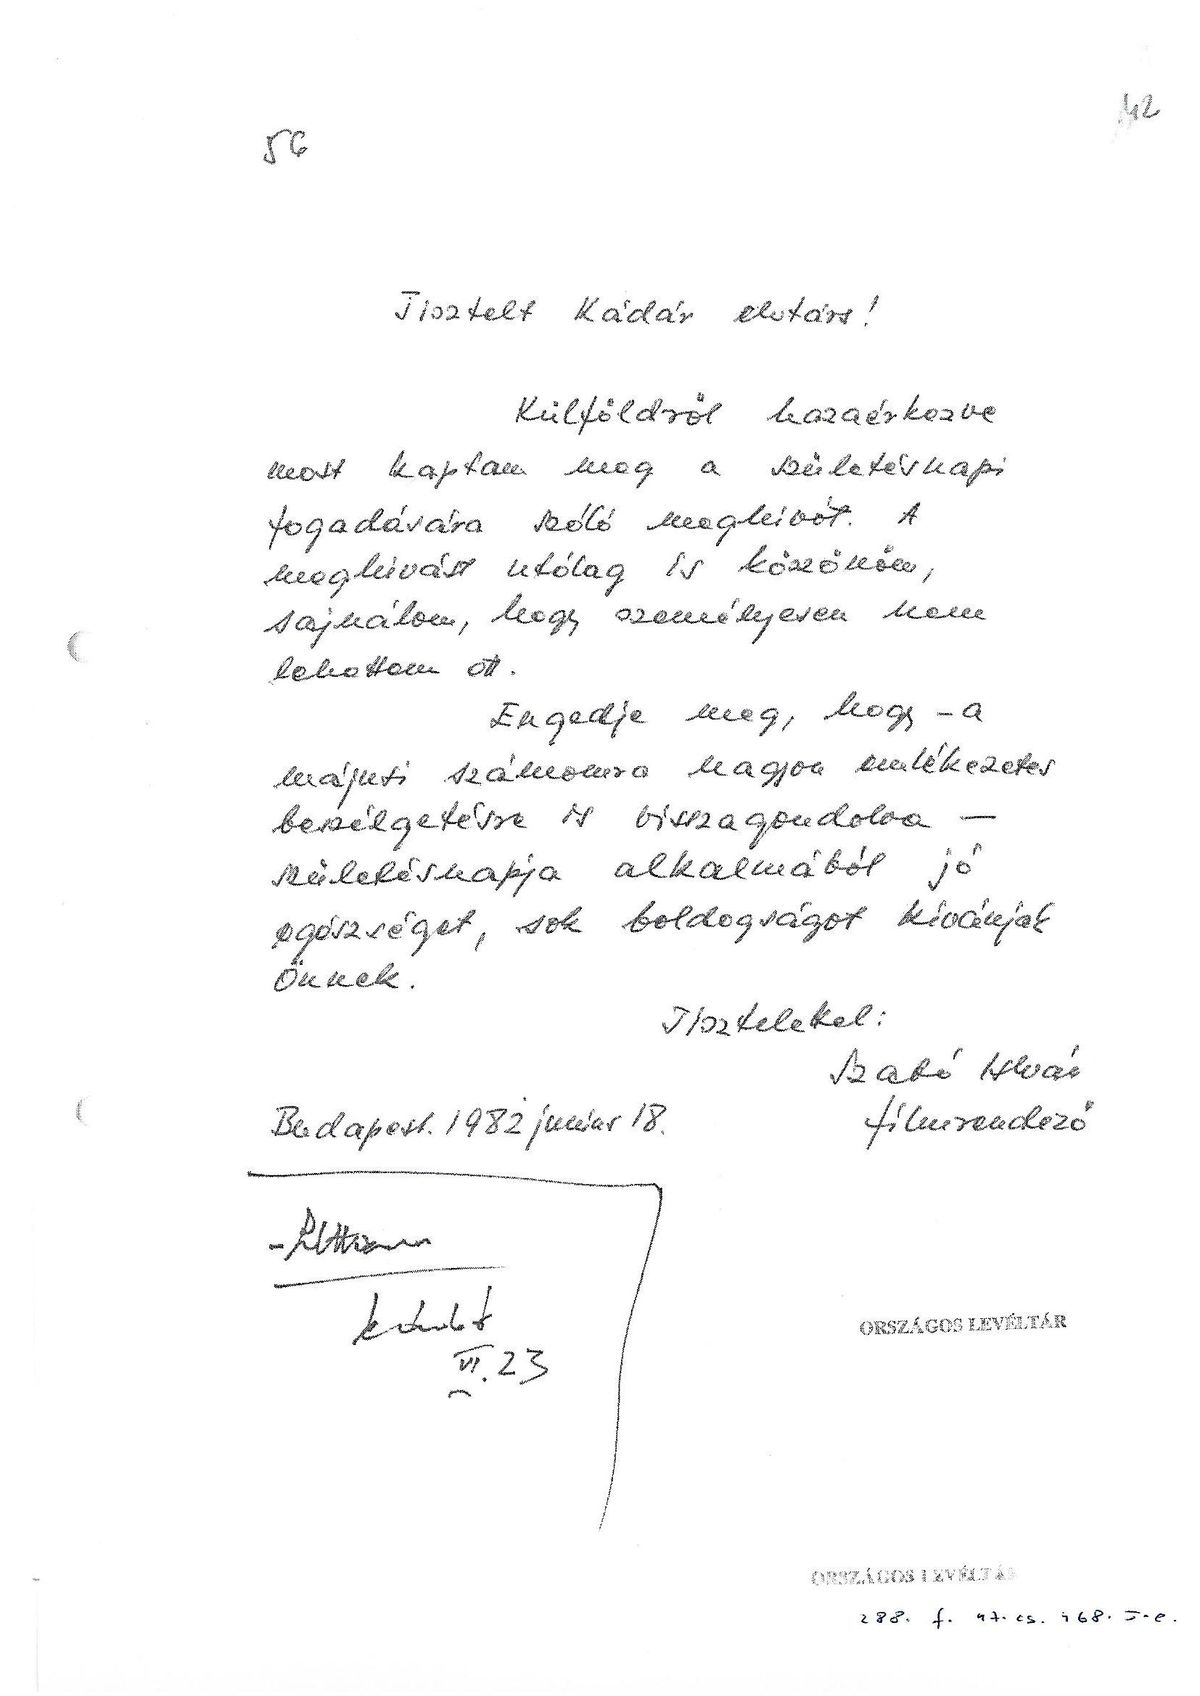 42
56
Tisztelt Kádár elvtárs!
Külföldről hazaérkezve
most kaptam meg a születésnapi
fogadására szóló meghivót. A
meghivást utólag is köszönöm,
sajnálom, hogy személyesen nem
lehettem ott.
Engedje meg, hogy - a
májusi számomra nagyon emlékezetes
beszélgetésre is visszagondolva —
születésnapja alkalmából jó
egészséget, sok boldogságot kívánjak
Önnek.
Tisztelettel:
Szabó István
filmrendező
Budapest. 1982 junius 18.
- Láttam
VI. 23
ORSZÁGOS LEVÉLTÁR
ORSZÁGOS LEVÉLTÁR
288. f. 47. cs. 768.